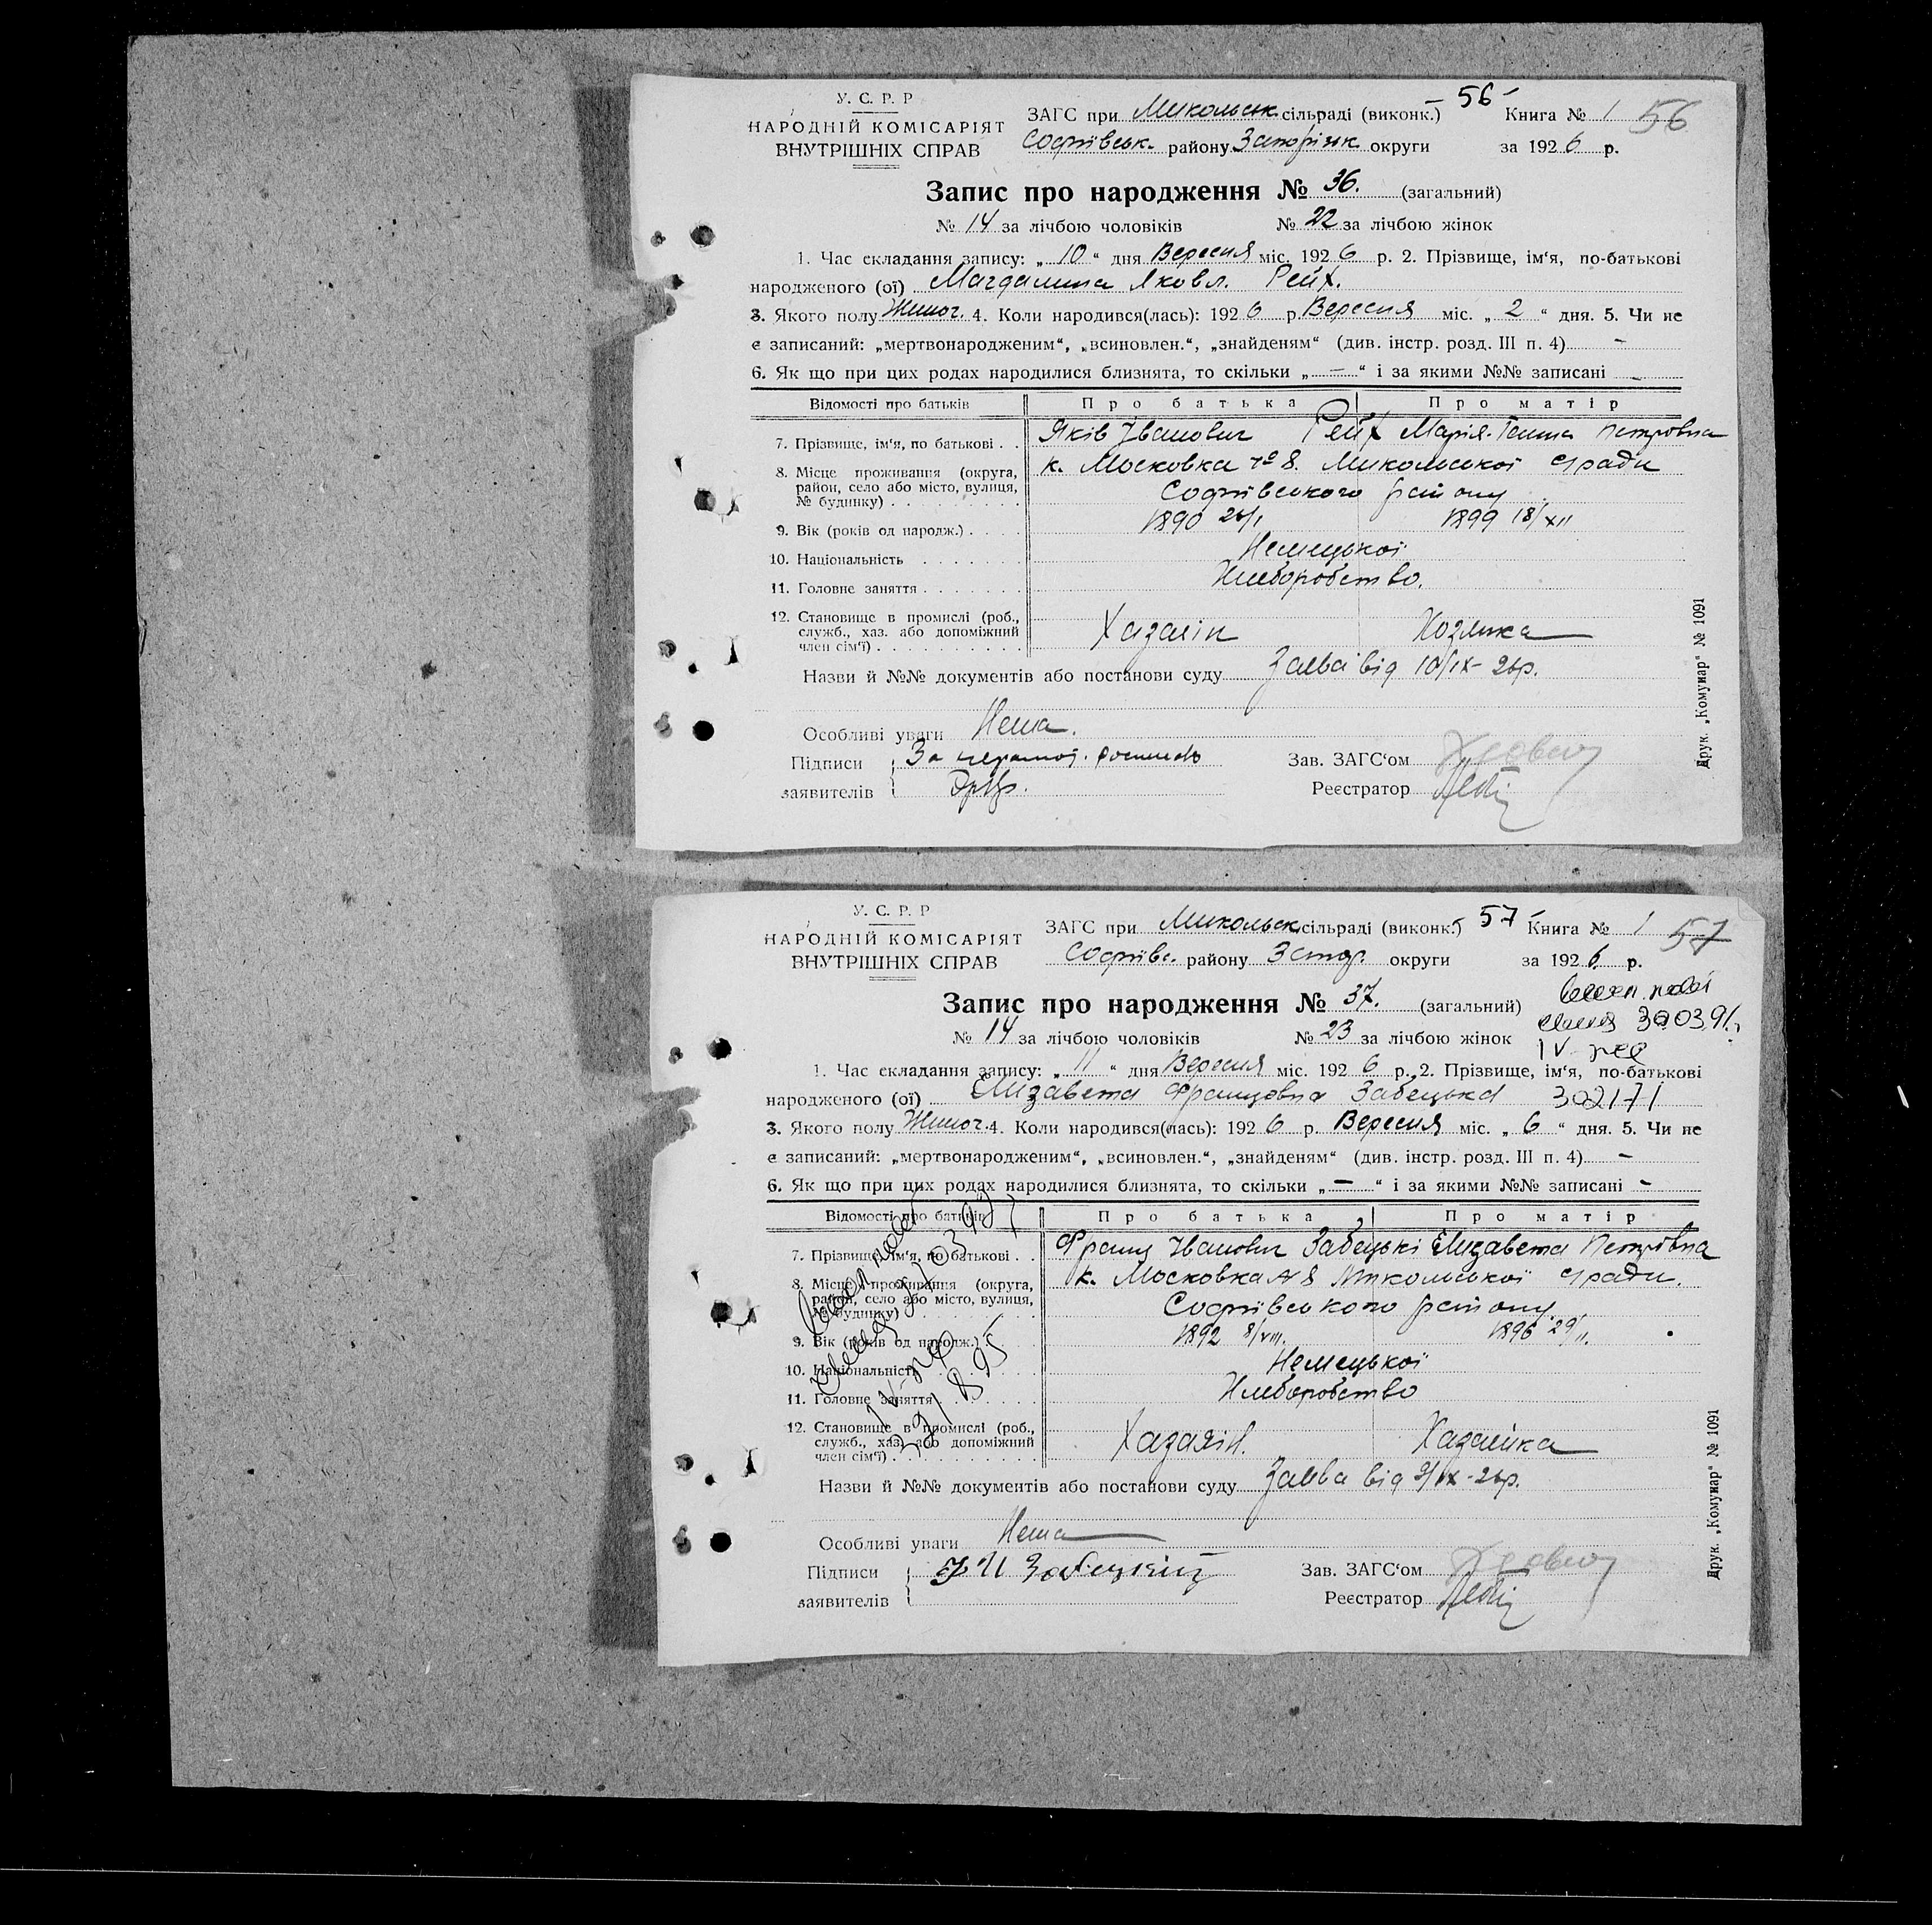 У. С. Р. Р
НАРОДНІЙ КОМІСАРІЯТ
ВНУТРІШНІХ СПРАВ
ЗАГС при Микольськ. сільраді (виконк.) 56 Книга № 1 56
Софіївськ. району Запорізьк округи за 1926 р.
Запис про народження № 36. (загальний)
№ 14 за лічбою чоловіків № 22 за лічбою жінок
1. Час складання запису: „ 10 “ дня Вересня міс. 1926 р. 2. Прізвище, ім‘я, по-батькові
народженого (ої) Магдалина Яковл. Рейх.
3. Якого полу Жиноч. 4. Коли народився(лась): 1926 р. Вересня міс. „ 2 “ дня. 5. Чи не
є записаний: „мертвонародженим“, „всиновлен.“, „знайденям“ (див. інстр. розд. III п. 4) –
6. Як що при цих родах народилися близнята, то скільки „ — “ і за якими №№ записані –
Відомості про батьків Про батька Про матір
7. Прізвище, ім‘я, по батькові . . Яків Іванович Рейх Марія-Ганна Петровна
8. Місце проживання (округа, район, село або місто, вулиця, № будинку) к. Московка № 8. Микольської с/ради
Софіївського району
9. Вік (років од народж.) 1890 26/I 1899 18/XII
10. Національність Немецької
11. Головне заняття Хліборобство.
12. Становище в промислі (роб., служб., хаз. або допоміжний член сім‘ї) Хазяїн Хозяйка
Назви й №№ документів або постанови суду Заява від 10/IX-26р.
Особливі уваги Нема.
Підписи За неграмот.
заявителів
Зав. ЗАГС‘ом
Реєстратор
Друк. „Комунар“ № 1091
У. С. Р. Р
НАРОДНІЙ КОМІСАРІЯТ
ВНУТРІШНІХ СПРАВ
ЗАГС при Микольськ. сільраді (виконк.) 57 Книга № 1 57
Софіївс. району Запор. округи за 1926 р.
Запис про народження № 37. (загальний)
№ 14 за лічбою чоловіків № 23 за лічбою жінок
1. Час складання запису: „ 11 “ дня Вересня міс. 1926 р. 2. Прізвище, ім‘я, по-батькові
народженого (ої) Елизавета Францовна Забецька 302171
3. Якого полу Жиноч. 4. Коли народився(лась): 1926 р. Вересня міс. „ 6 “ дня. 5. Чи не
є записаний: „мертвонародженим“, „всиновлен.“, „знайденям“ (див. інстр. розд. III п. 4) –
6. Як що при цих родах народилися близнята, то скільки „ — “ і за якими №№ записані –
Відомості про батьків Про батька Про матір
7. Прізвище, ім‘я, по батькові . . Франц Іванович Забецькі Елизавета Петрівна
8. Місце проживання (округа, район, село або місто, вулиця, № будинку) к. Московка № 8 Микольської с/ради.
Софіївського району.
9. Вік (років од народж.) 1892 8/VIII. 1896 29/II.
10. Національність Немецької
11. Головне заняття Хліборобство
12. Становище в промислі (роб., служб., хаз. або допоміжний член сім‘ї) Хазяїн. Хазяйка
Назви й №№ документів або постанови суду Заява від 9/IX-26р.
Особливі уваги Нема
Підписи Ф И Забецкий
заявителів
Зав. ЗАГС‘ом
Реєстратор
Друк. „Комунар“ № 1091